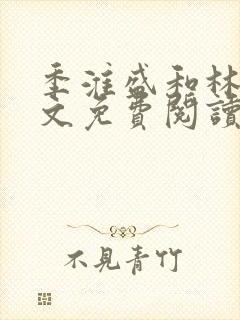 季淮盛和林
文免費閱讀
不見青竹